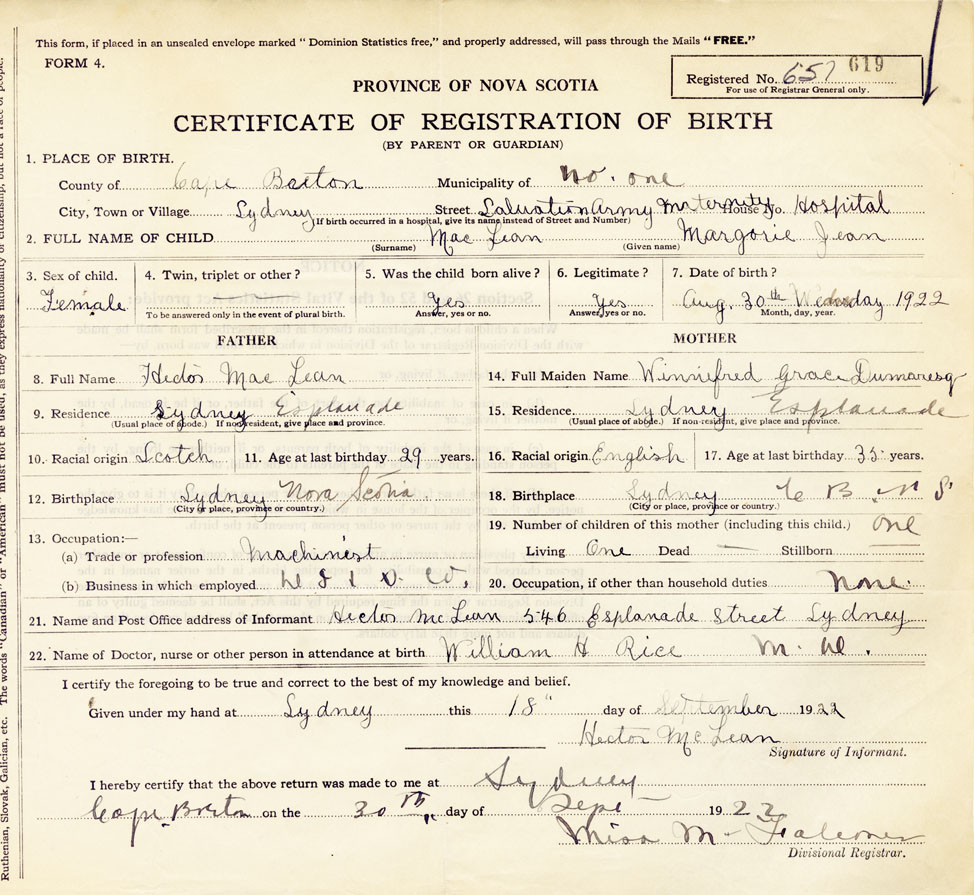 This form, if placed in an unsealed envelope marked "Dominion Statistics free," and properly addressed, will pass through the Mails "FREE."
FORM 4.
Registered No. 657 619
For use of Registrar General only.
PROVINCE OF NOVA SCOTIA
CERTIFICATE OF REGISTRATION OF BIRTH
(BY PARENT OR GUARDIAN)
1. PLACE OF BIRTH.
County of Cape Breton Municipality of No. one
City, Town or Village Sydney Street Salvation Army Maternity House No. Hospital
(If birth occurred in a hospital, give its name instead of Street and Number)
2. FULL NAME OF CHILD Mac Lean Margorie Jean
(Surname) (Given name)
3. Sex of child. 4. Twin, triplet or other? 5. Was the child born alive? 6. Legitimate? 7. Date of birth?
Female Yes Yes Aug. 30th Wednesday 1922
To be answered only in the event of plural birth. Answer, yes or no. Answer, yes or no. Month, day, year.
FATHER MOTHER
8. Full Name Hector Mac Lean 14. Full Maiden Name Winnifred Grace Dumaresq
9. Residence Sydney Esplanade 15. Residence Sydney Esplanade
(Usual place of abode.) If non-resident, give place and province. (Usual place of abode.) If non-resident, give place and province.
10. Racial origin Scotch 11. Age at last birthday 29 years. 16. Racial origin English 17. Age at last birthday 35 years.
12. Birthplace Sydney Nova Scotia 18. Birthplace Sydney C B N S
(City or place, province or country.) (City or place, province or country.)
19. Number of children of this mother (including this child.) one
13. Occupation:—
(a) Trade or profession Machinest Living One Dead — Stillborn
(b) Business in which employed D I S Co, 20. Occupation, if other than household duties None.
21. Name and Post Office address of Informant Hector McLean 546 Esplanade Street Sydney
22. Name of Doctor, nurse or other person in attendance at birth William H Rice M. D.
I certify the foregoing to be true and correct to the best of my knowledge and belief.
Given under my hand at Sydney this 18" day of September 1922
Hector McLean
Signature of Informant.
I hereby certify that the above return was made to me at Sydney
Cape Breton on the 30th day of Sept 1922
Miss M. Falconer
Divisional Registrar.
Ruthenian, Slovak, Galician, etc. The words "Canadian" or "American" must not be used, as they express nationality or citizenship, but not a race of people.